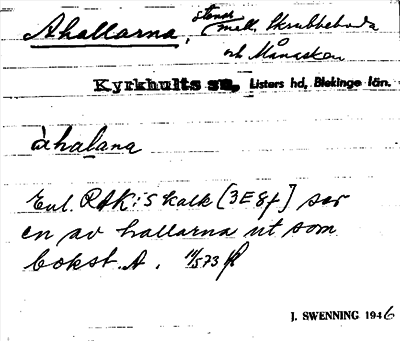 Ahallarna, strand mell. Skrubbeboda
och Månasken
Kyrkhults sn, Listers hd, Blekinge län.
àhalana
Enl. RAK:s kalk [3E8f] ser
en av hallarna ut som
bokst. A. 11/5 73
J. SWENNING 1946